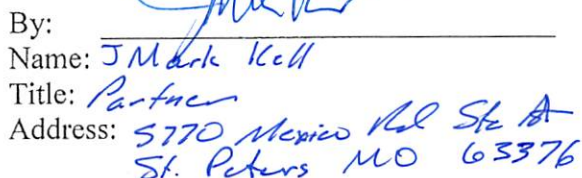 By:
Name: J Mark Kell
Title: Partner
Address: 5770 Mexico Rd Ste A
St. Peters MO 63376